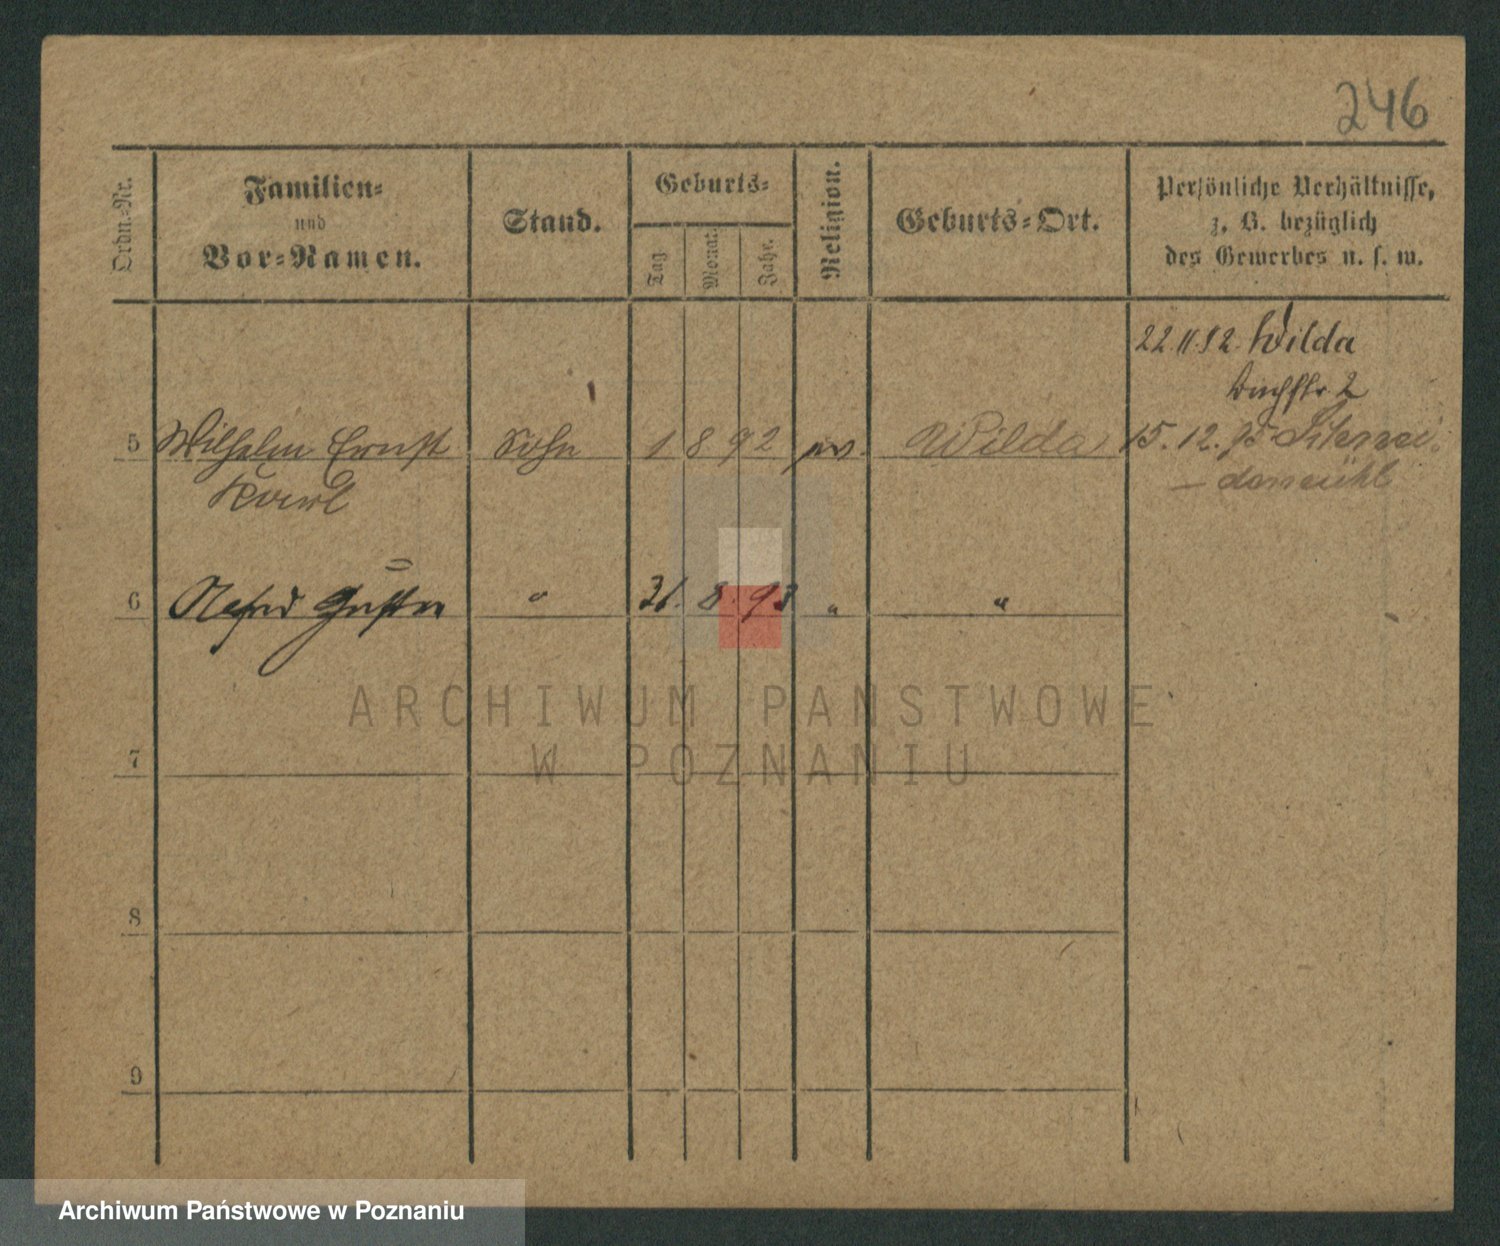 246
Ordn.-Nr.
Familien-
und
Vor-Namen.
Stand.
Geburts-
Tag
Monat.
Jahr.
Religion.
Geburts-Ort.
Persönliche Verhältnisse,
z. B. bezüglich
des Gewerbes u. s. w.
22 11 92. Wilda
2
5 Wilhelm Ernst Sohn 1 8 92 Wilda 15. 12. 95 Schnei-
Karl
demühl
6 Gustav " 31. 8. 93 " "
7
8
9
ARCHIWUM PAŃSTWOWE
W POZNANIU
Archiwum Państwowe w Poznaniu